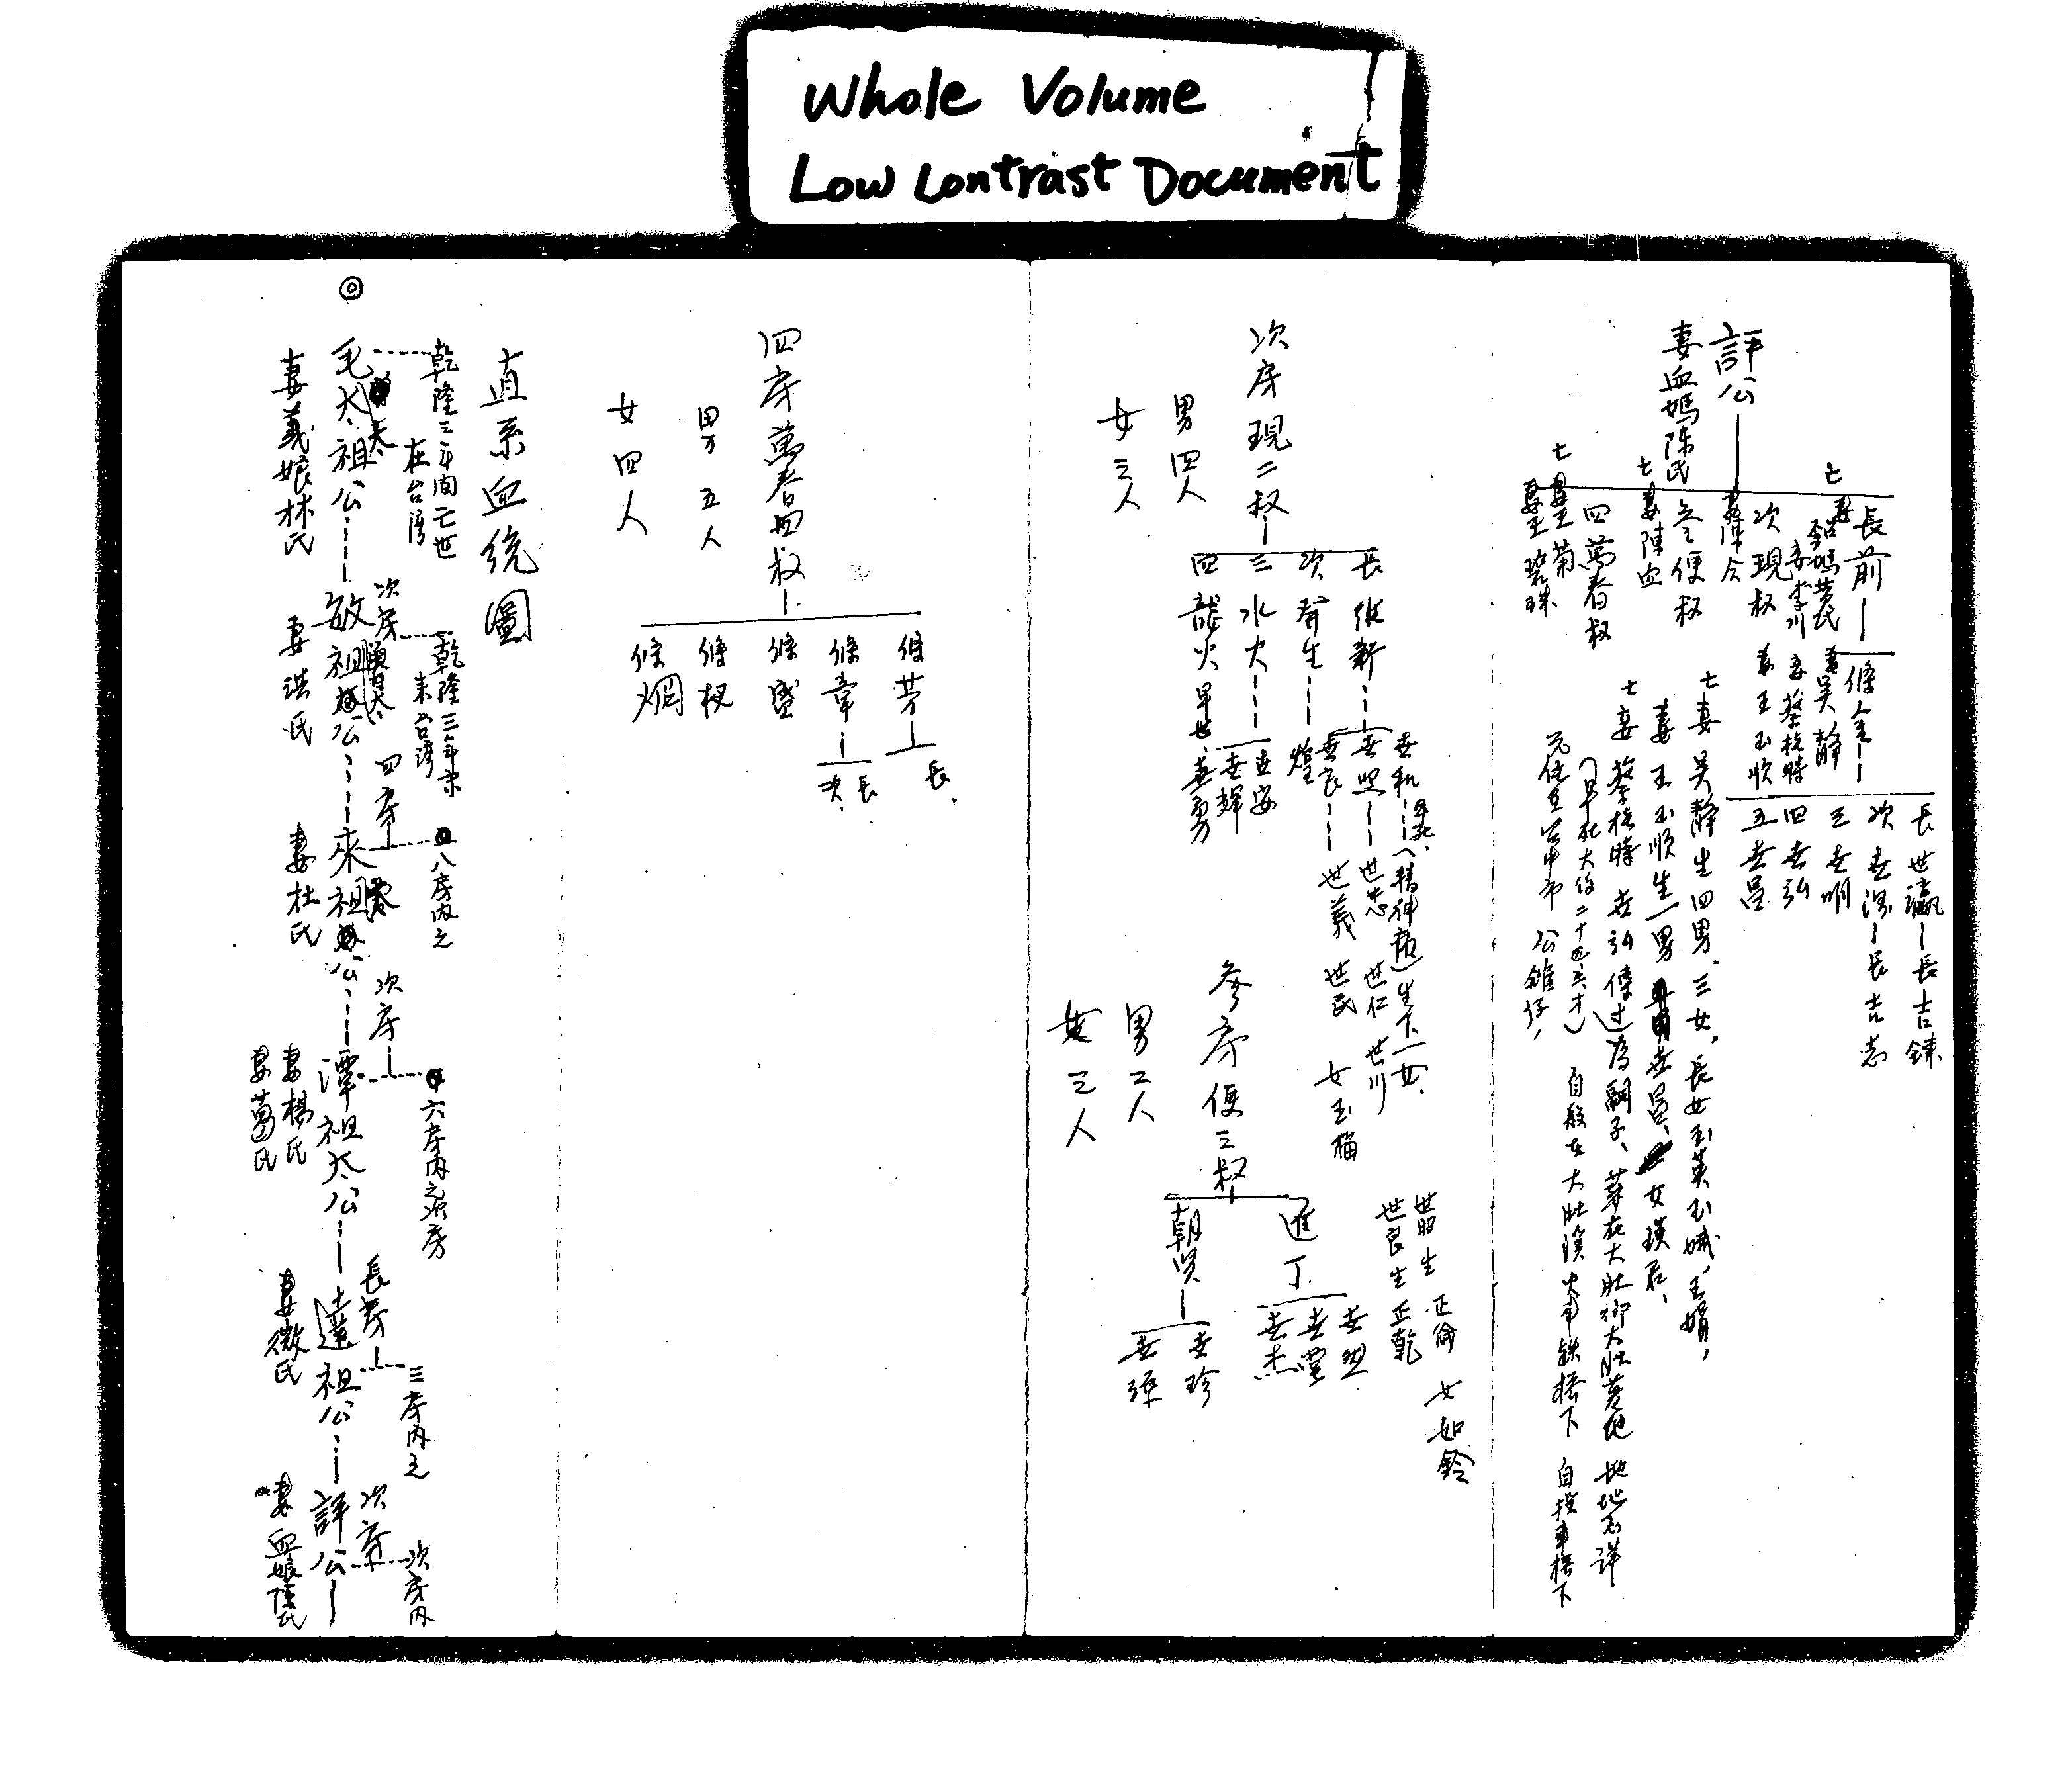 Whole Volume
Low Contrast Document
評公
妻血媽陳氏
長前
妻鉛媽黃氏
妾李川
次現叔
妻陳今
叁便叔
妻陳血
四萬春叔
妻王菊
妻王碧珠
條全
妻吳靜
妾蔡枝時
妾王玉順
長世瀛
長吉鍊
次世深
長吉志
三世明
四世弘
五世昌
妻吳靜生四男、三女、長女玉英玉城、玉娟,
妻王玉順生一男世昌、女瑛君、
妾蔡枝時世弘傳過為嗣子、葬在大肚鄉大肚
地不詳
自殺在大肚溪火車鉄橋下
元住至台中市公館仔,
次房現二叔
男四人
女三人
長維新
次發生
三水火
四龍火早世
世和
(精神病)生下一女、
世照
世忠 世仁 世川
世良
世義 世民 女玉梅
煌
世安
世輝
世勇
世昭生 正倫 女如鈴
世良生 正乾
叁房便三叔
男二人
女三人
進丁
世堂
世杰
朝贤
世珍
四房萬春四叔
男五人
女四人
條芳
長、
條章
長
次、
條盛
條权
條烱
直系血统圖
乾隆三年間亡世
在台灣
毛太祖公
妻義娘林氏
次房
乾隆三年末
来台灣
敏祖公
妻洪氏
四房
八房內之
來祖公
妻杜氏
次房
六房內之次房
潭祖太公
妻楊氏
妻葛氏
長房
三房內之
達祖公
妻微氏
次房
次房內
評公
妻血娘陳氏